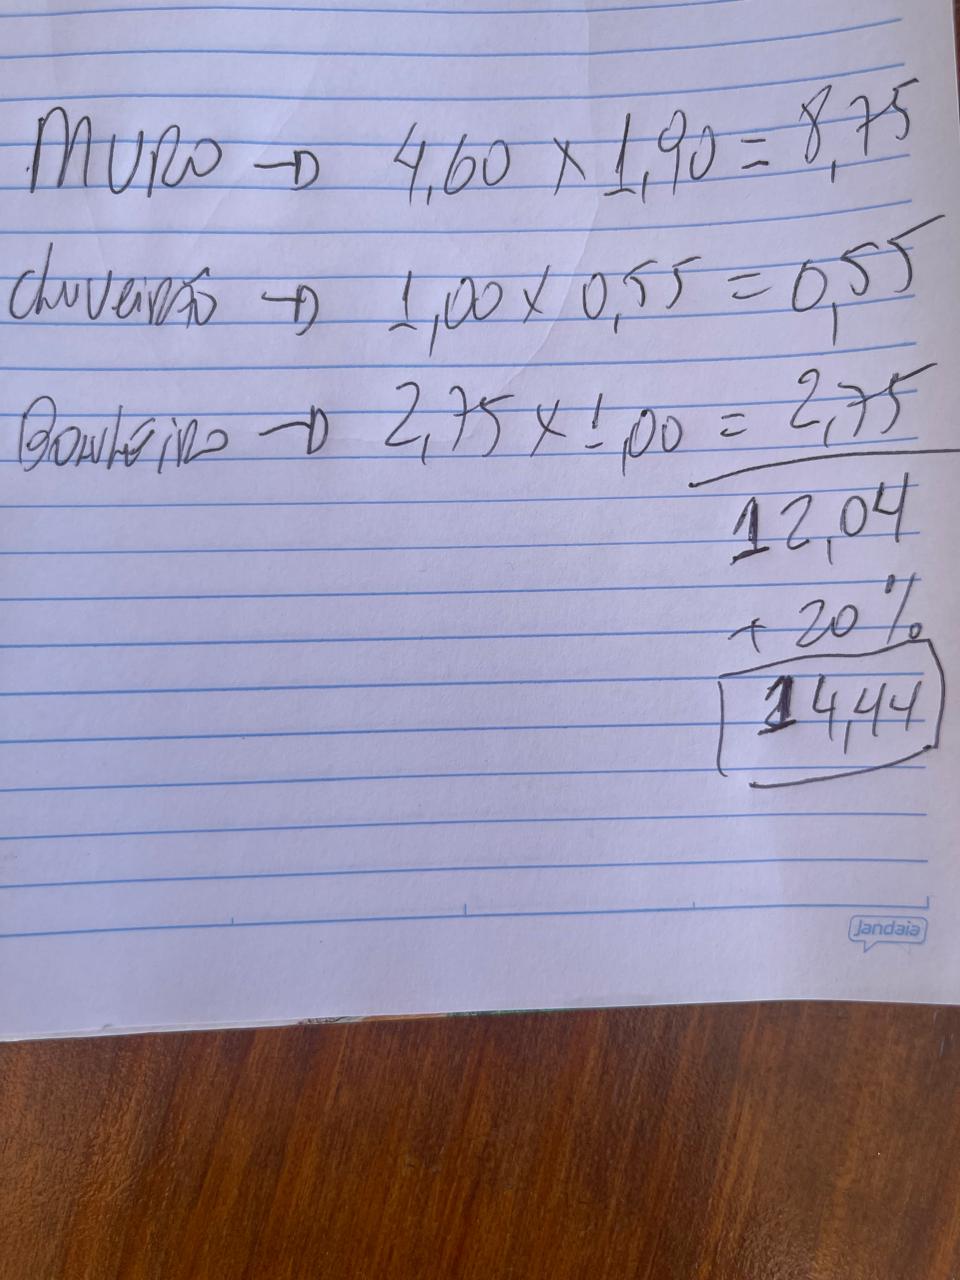 MURO → 4,60 X 1,90 = 8,75
chuveirão → 1,00 X 0,55 = 0,55
→ 2,75 X 1,00 = 2,75
12,04
+ 20%
14,44
Jandaia